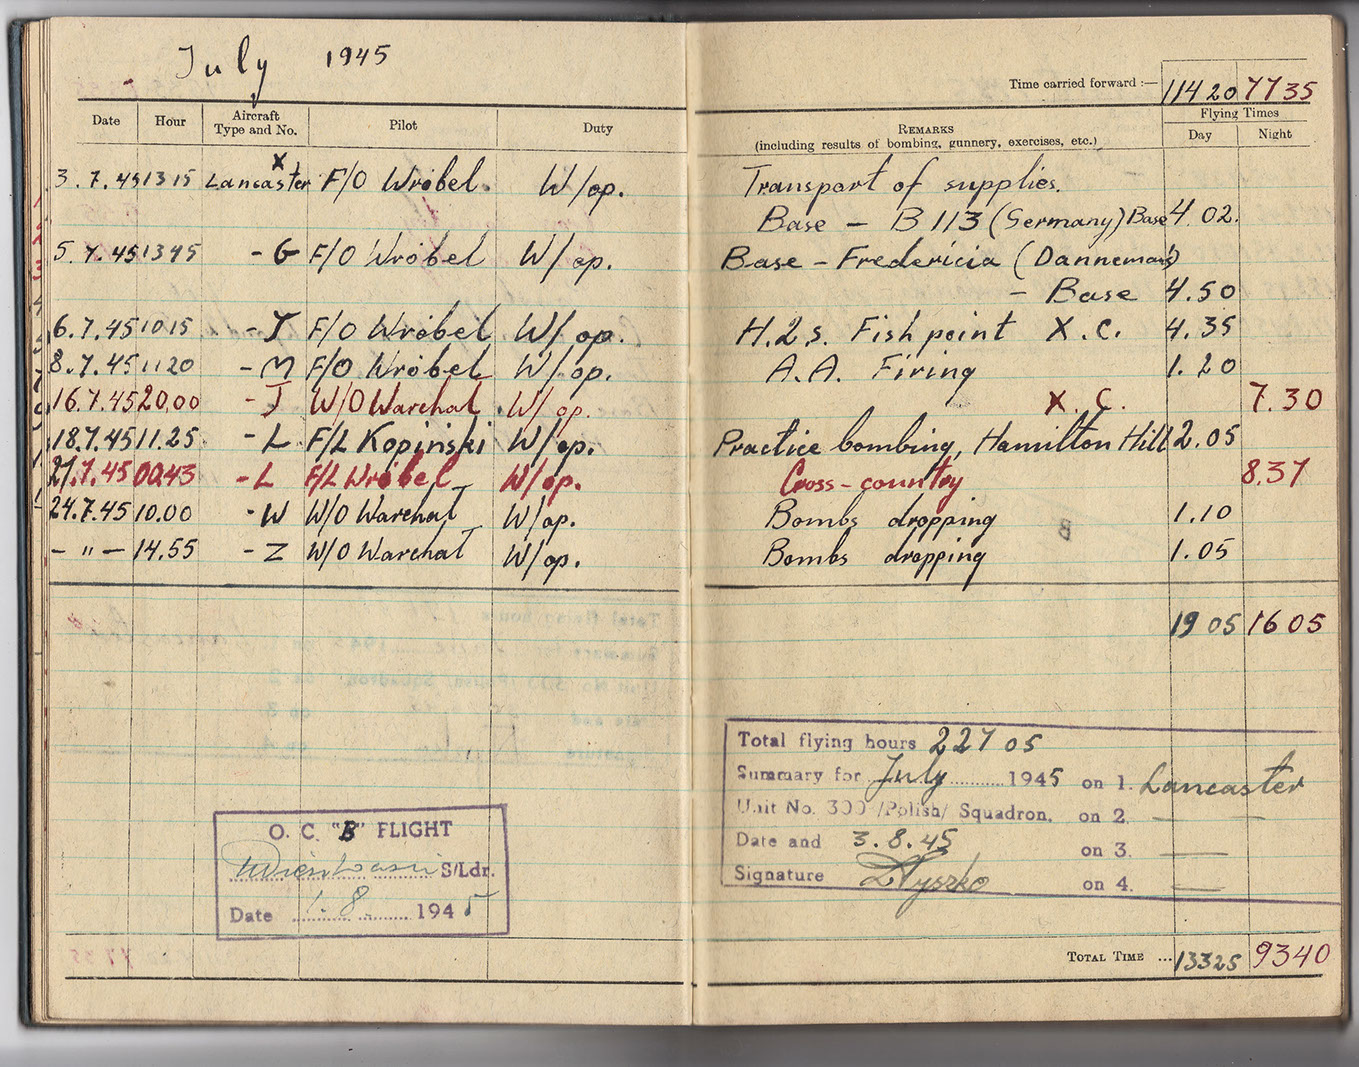 July 1945
Time carried forward :— 114 20 77 35
Date Hour Aircraft Type and No. Pilot Duty
REMARKS
(including results of bombing, gunnery, exercises, etc.)
Flying Times
Day Night
3.7.45 1315 Lancaster X F/O Wróbel. W/op. Transport of supplies.
Base - B 113 (Germany) Base 4 02.
5.7.45 1345 - G F/O Wróbel W/op. Base - Fredericia (Dannemark)
- Base 4.50
6.7.45 10.15 - J F/O Wróbel W/op. H.2.s. Fishpoint X.C. 4.35
8.7.45 11 20 - M F/O Wróbel W/op. A.A. Firing 1.20
16.7.45 20.00 - J W/O Warchał W/op. X.C. 7.30
18.7.45 11.25 - L F/L Kopiński W/op. Practice bombing, Hamilton Hill 2.05
21.7.45 00.43 - L F/L Wróbel W/op. Cross-country 8.37
24.7.45 10.00 - W W/O Warchał W/op. Bombs dropping 1.10
- " - 14.55 - Z W/O Warchał W/op. Bombs dropping 1.05
19 05 16 05
Total flying hours 227 05
Summary for July 1945 on 1. Lancaster
Unit No. 300 /Polish/ Squadron. on 2. — —
Date and 3.8.45 on 3. —
Signature on 4. —
O. C. "B" FLIGHT
S/Ldr.
Date 1.8. 1945
TOTAL TIME ... 133 25 93 40